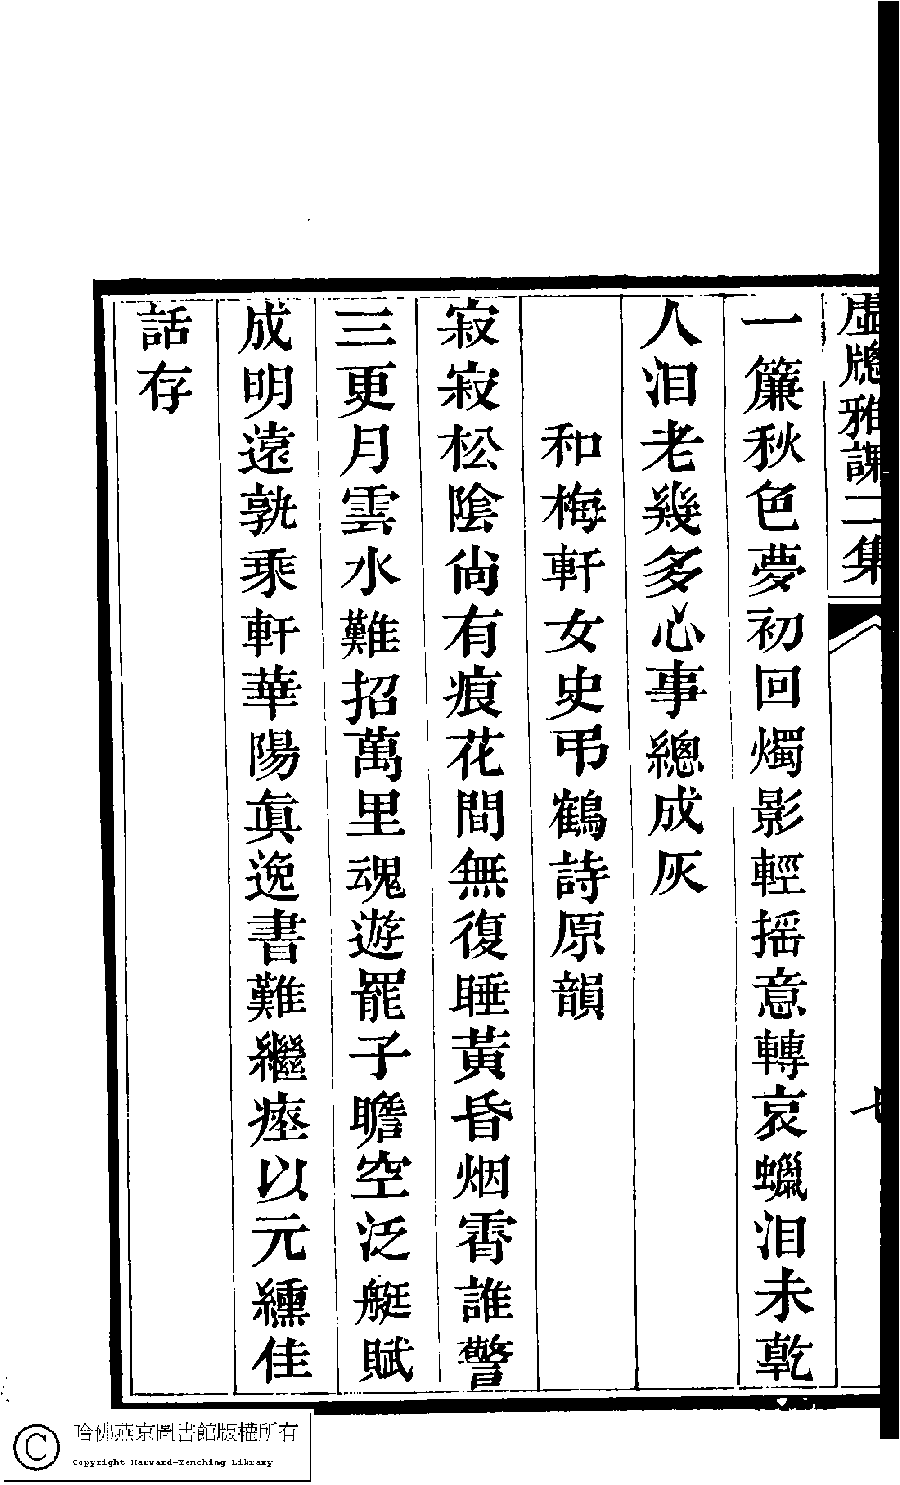 虛牕雅課二集
一簾秋色夢初回燭影輕摇意轉哀蠟泪未乾
人泪老幾多心事總成灰
和梅軒女史弔鶴詩原韻
寂寂松陰尙有痕花間無復睡黃昏烟霄誰警
三更月雲水難招萬里魂遊罷子瞻空泛艇賦
成明遠孰乘軒華陽眞逸書難繼瘞以元纁佳
話存
哈佛燕京圖書館版權所有
Copyright Harvard-Yenching Library